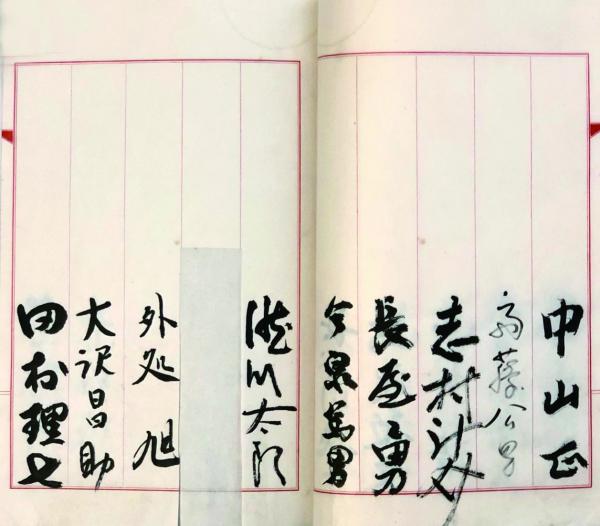 中山正
斎藤公男
志村計介
長屋勇
今泉篤男
瀧川太郎
外処 旭
大沢昌助
田村理七